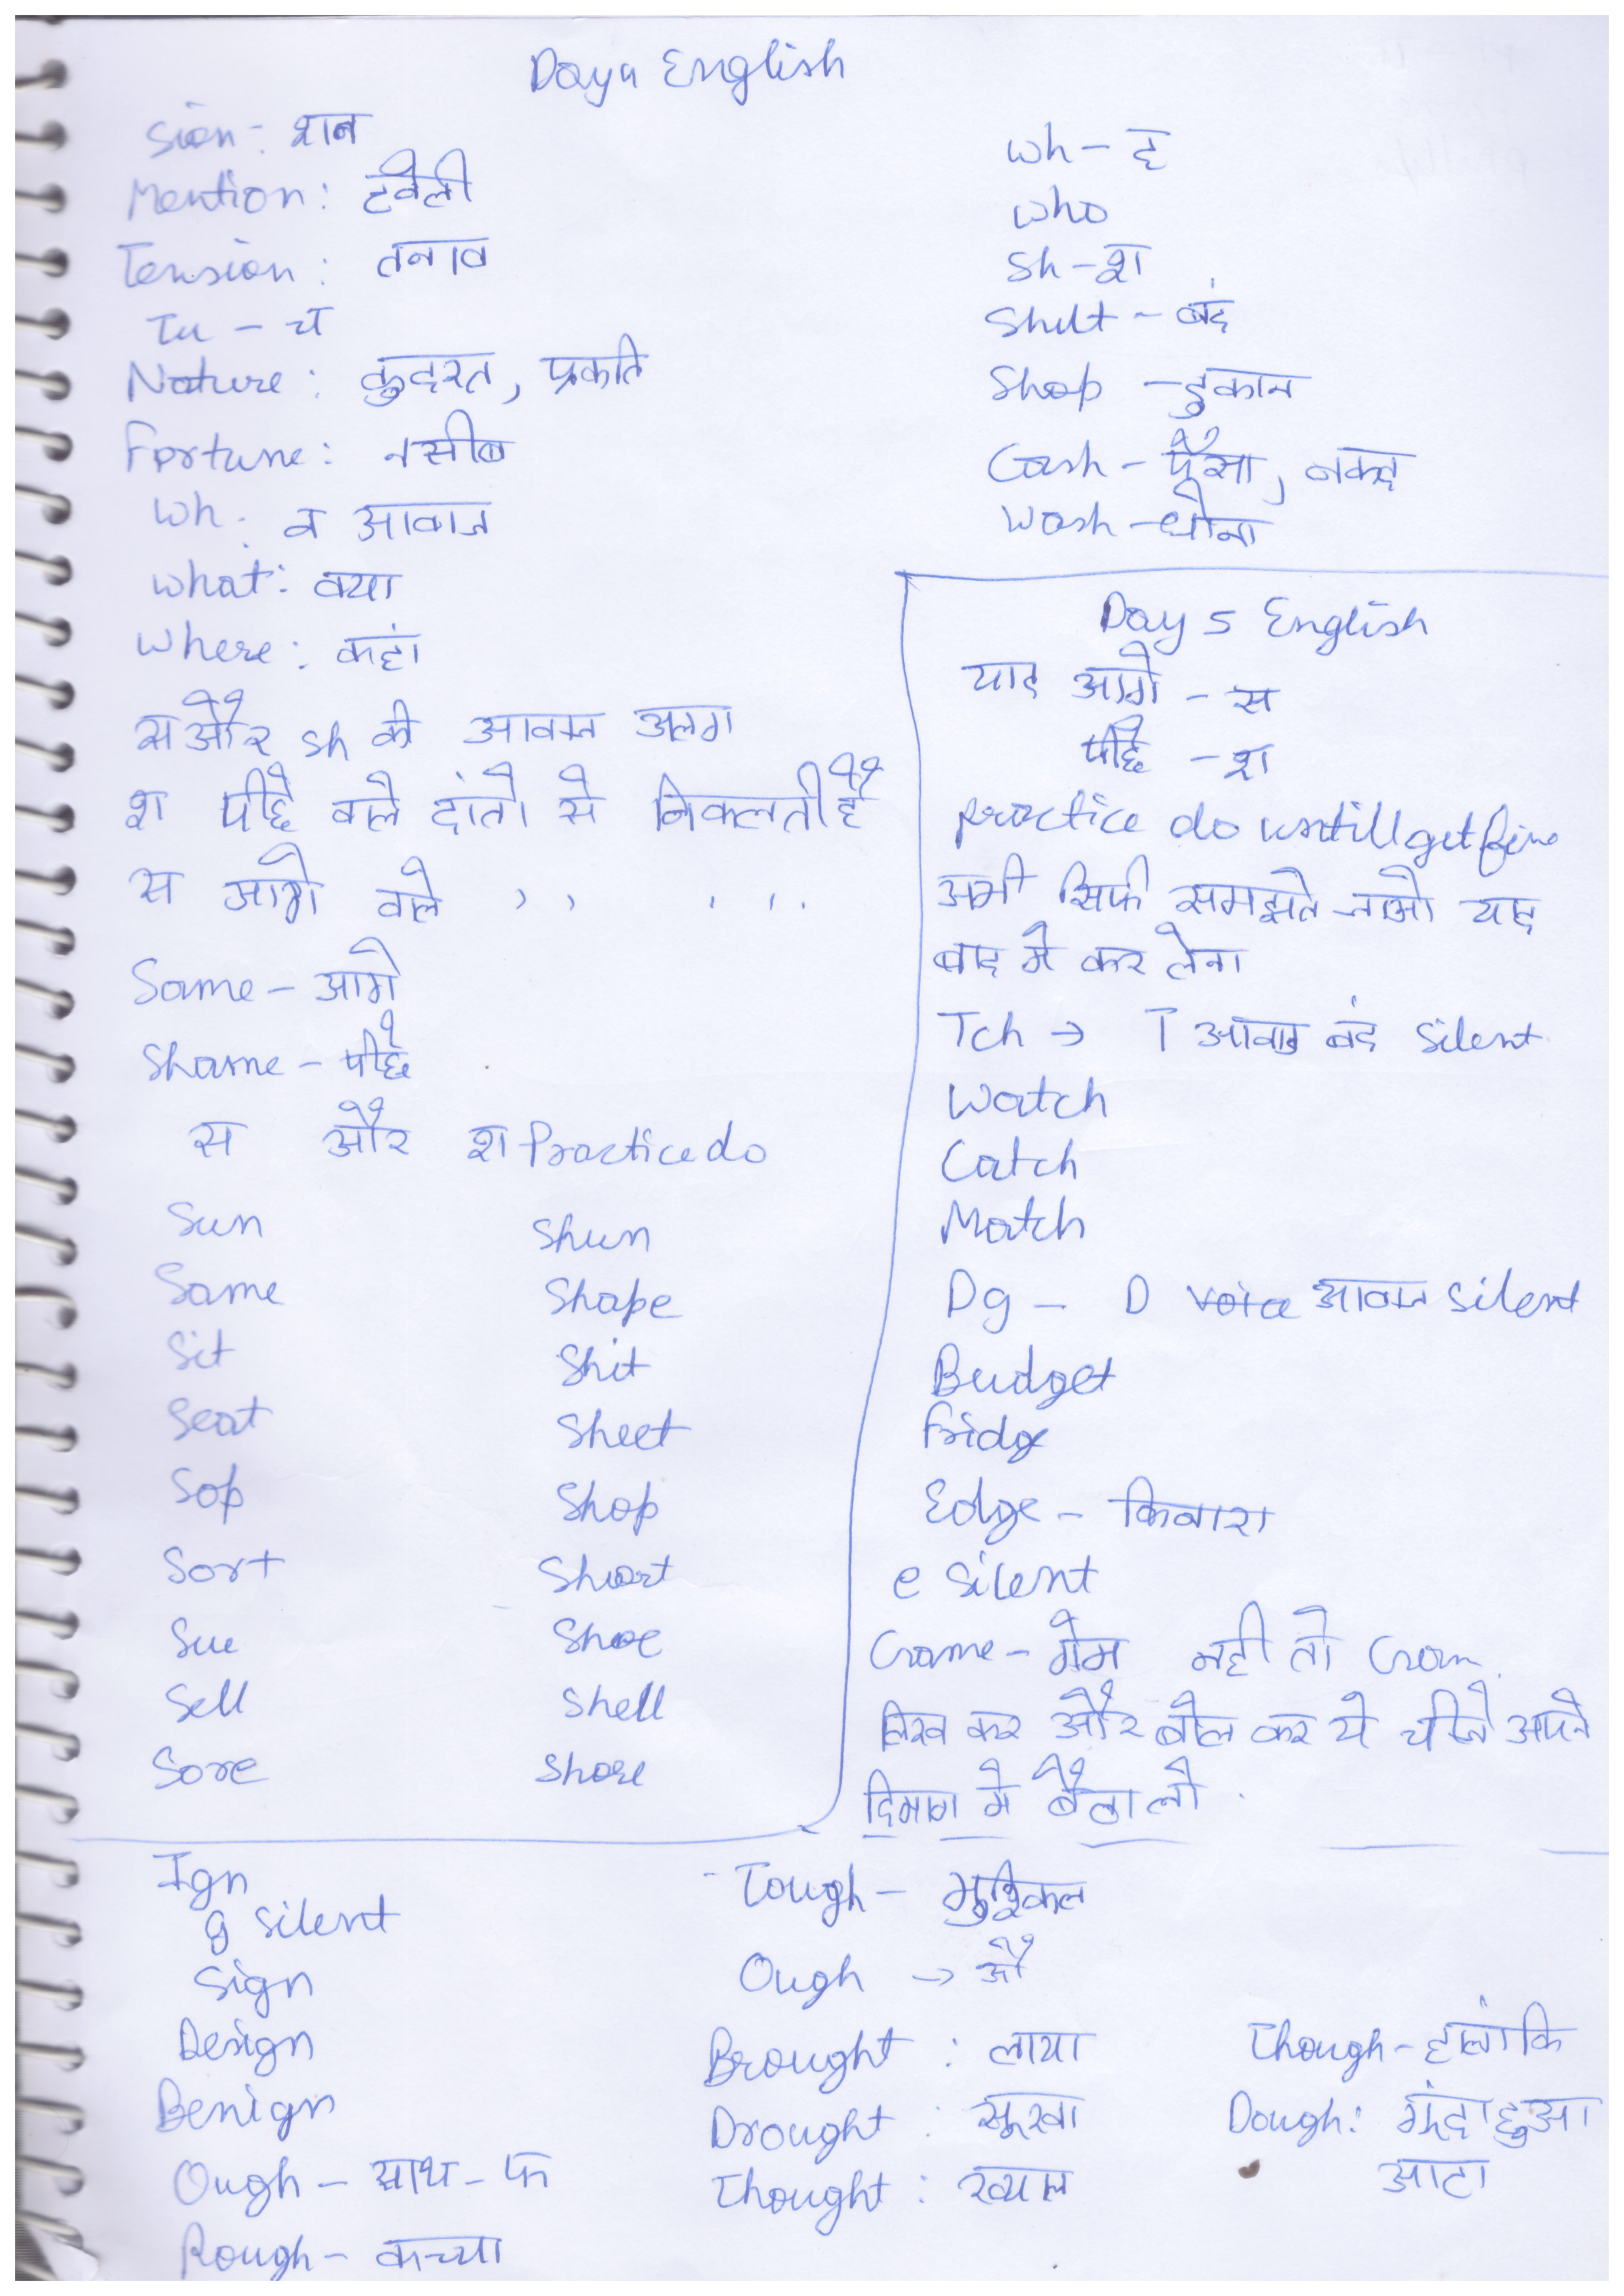 Day 4 English
Sion: शन
Mention: हवेली
Tension: तनाव
Tu - च
Nature: कुदरत, प्रकति
Fortune: नसीब
Wh: व आवाज
What: क्या
Where: कहां
स और sh की आवाज अलग
श पीछे वाले दांतो से निकलती है
स आगे वाले ,, ,,
Same - आगे
Shame - पीछे
स और श Practice do
Sun Shun
Same Shape
Sit Shit
Seat Sheet
Sop Shop
Sort Short
Sue Shoe
Sell Shell
Sore Shore
Wh - ह
Who
Sh - श
Shut - बंद
Shop - दुकान
Cash - पैसा, नकद
Wash - धोना
Day 5 English
याद आगे - स
पीछे - श
practice do untill get fine
अभी सिर्फ समझते जाओ याद
बाद मे कर लेना
Tch → T आवाज बंद silent
Watch
Catch
Match
Dg - D voice आवाज silent
Budget
Fridge
Edge - किनारा
e silent
Game - गेम नही तो Gam
लिख कर और बोल कर ये चीजे अपने
दिमाग मे बैठा लो.
Ign
g silent
Sign
Design
Benign
Ough - साथ - फ
Rough - कच्चा
Tough - मुश्किल
Ough → औ
Brought : लाया
Drought : सूखा
Thought : ख्याल
Though - हालांकि
Dough: गूंदा हुआ
आटा